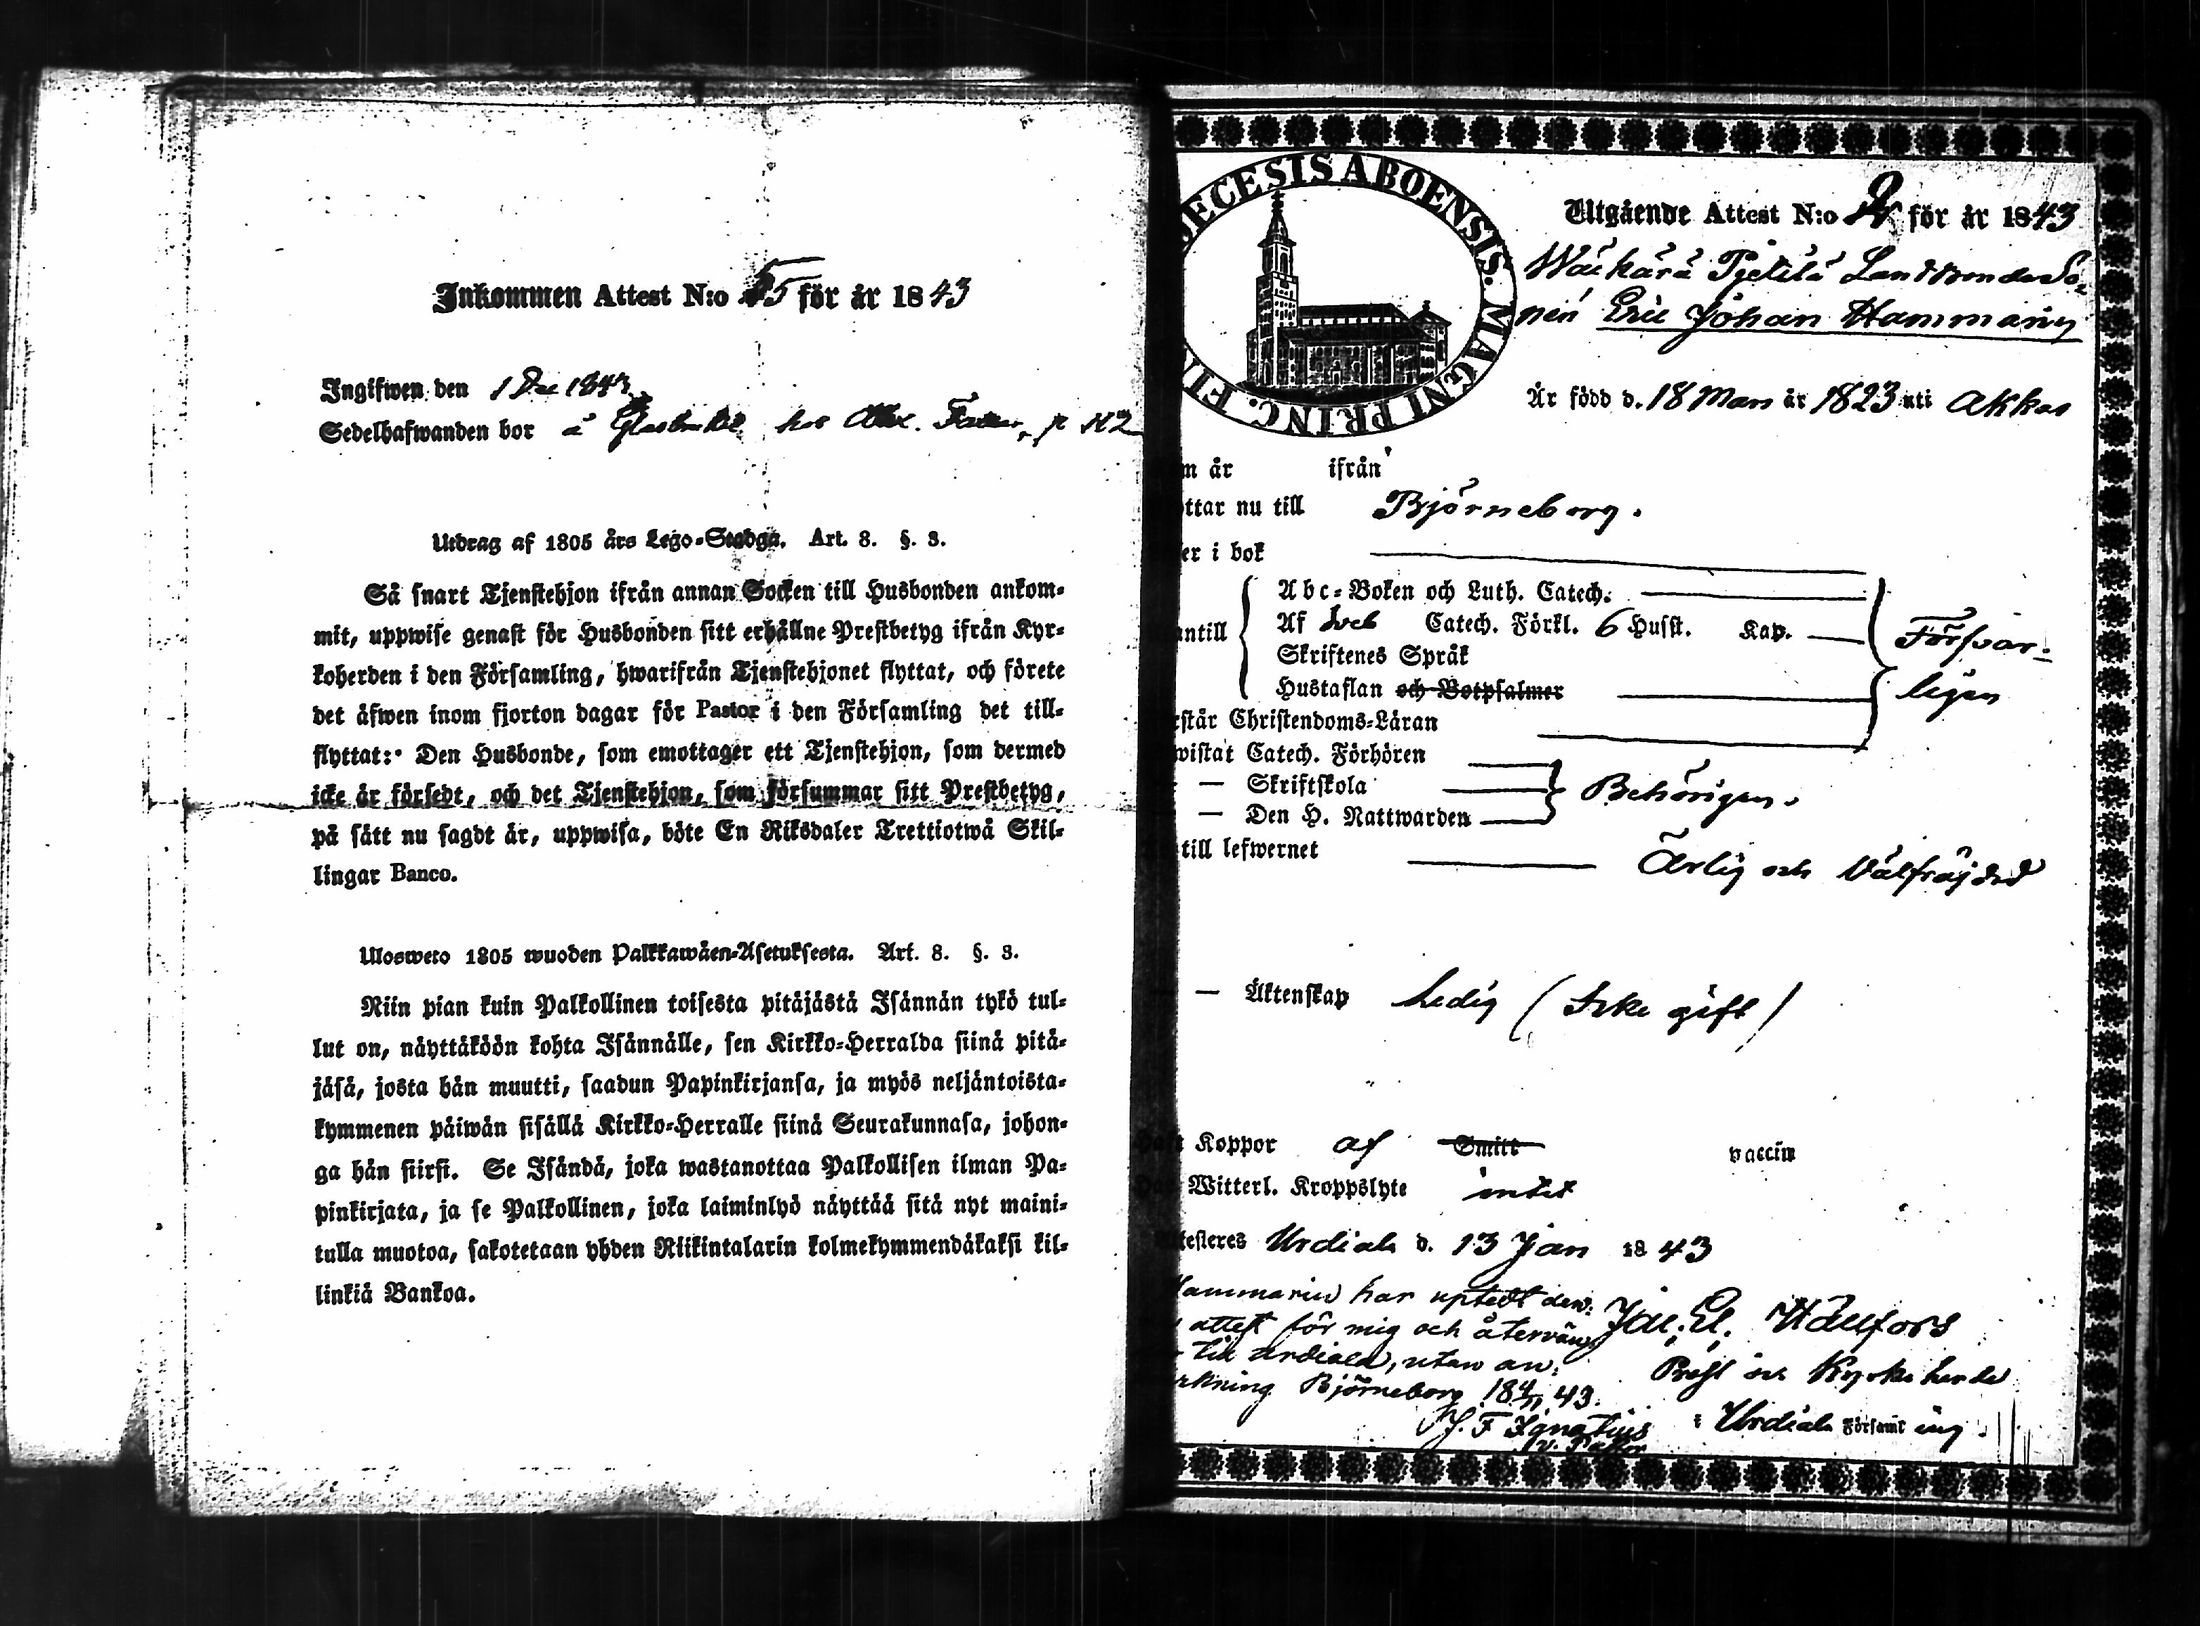 Inkommen Attest N:o 55 för år 1843
Ingifwen den 1 Dec 1843
Sedelhafwanden bor å Glasbruket hos
Utdrag af 1805 års Lego-Stadga. Art. 8. §. 3.
Så snart Tjenstehjon ifrån annan Socken till Husbonden ankom-
mit, uppwise genast för Husbonden sitt erhållne Prestbetyg ifrån Kyr-
koherden i den Församling, hwarifrån Tjenstehjonet flyttat, och förete
det äfwen inom fjorton dagar för Pastor i den Församling det till-
flyttat: Den Husbonde, som emottager ett Tjenstehjon, som dermed
icke är försedt, och det Tjenstehjon, som försummar sitt Prestbetyg,
på sätt nu sagdt är, uppwisa, böte En Riksdaler Trettiotwå Skil-
lingar Banco.
Ulosweto 1805 wuoden Palkkawäen-Asetuksesta. Art. 8. §. 3.
Niin pian kuin Palkollinen toisesta pitäjästä Isännän tykö tul-
lut on, näyttäköön kohta Isännälle, sen Kirkko-Herralda siinä pitä-
jäsä, josta hän muutti, saadun Papinkirjansa, ja myös neljäntoista-
kymmenen päiwän sisällä Kirkko-Herralle siinä Seurakunnasa, johon-
ga hän siirsi. Se Isändä, joka wastanottaa Palkollisen ilman Pa-
pinkirjata, ja se Palkollinen, joka laiminlyö näyttää sitä nyt maini-
tulla muotoa, sakotetaan yhden Riikintalarin kolmekymmendäkaksi kil-
linkiä Bankoa.
ŒCESIS ABOENSIS. MAGNI PRINC. FI
Utgående Attest N:o för år 1843
Landbondeso-
nen Eric Johan Hammarin
Är född d. 18 Mars år 1823 uti Akkas
m år ifrån
ttar nu till Björneborg.
er i bok
Abc-Boken och Luth. Catech.
ntill Af Sveb Catech. Förkl. 6 Husst. Kap. Försvar-
Skriftenes Språk
Hustaflan och Botpsalmer ligen
rstår Christendoms-Läran
wistat Catech. Förhören
— Skriftskola Behörigen.
— Den H. Nattwarden
till lefwernet Ärlig och Välfräjdad
— Äktenskap Ledig (Icke gift)
Haft Koppor af Smitt vaccin
Witterl. Kroppslyte intet
ttesteres Urdiala d. 13 Jan 1843
Hammarin har uptedt den-
attest för mig och återvän- Jac. El. Hällfors
till Urdiala, utan an- Prost och Kyrkoherde
rkning Björneborg 43.
J. F. Ignatius i Urdiala Församling.
v. Pastor